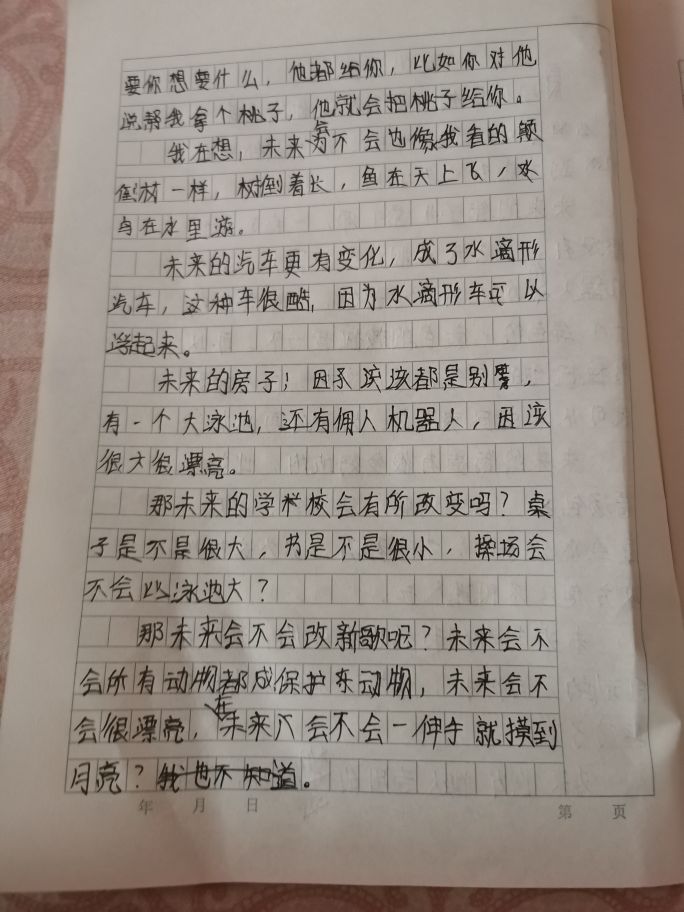 要你想要什么，他都给你，比如你对他
说帮我拿个桃子，他就会把桃子给你。
我在想，未来会不会也像我看的颠
倒树一样，树倒着长，鱼在天上飞，水
鸟在水里游。
未来的汽车更有变化，成了水滴形
汽车，这种车很酷，因为水滴形车可以
浮起来。
未来的房子！因该都是别墅，
有一个大泳池，还有佣人机器人，因该
很大很漂亮。
那未来的学校会有所改变吗？桌
子是不是很大，书是不是很小，操场会
不会比泳池大？
那未来会不会改新歌呢？未来会不
会所有动物都成保护动物，未来会不
会很漂亮，在未来会不会一伸手就摸到
月亮？我也不知道。
年 月 日 第 页